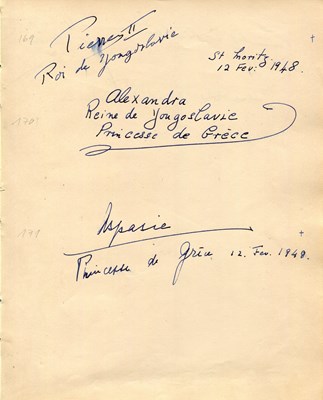 169
Pierre II
Roi de Yougoslavie
St Moritz
12 Fev: 1948.
170
Alexandra
Reine de Yougoslavie
Princesse de Grèce
171
Aspasie
Princesse de Grèce 12. Fev. 1948.